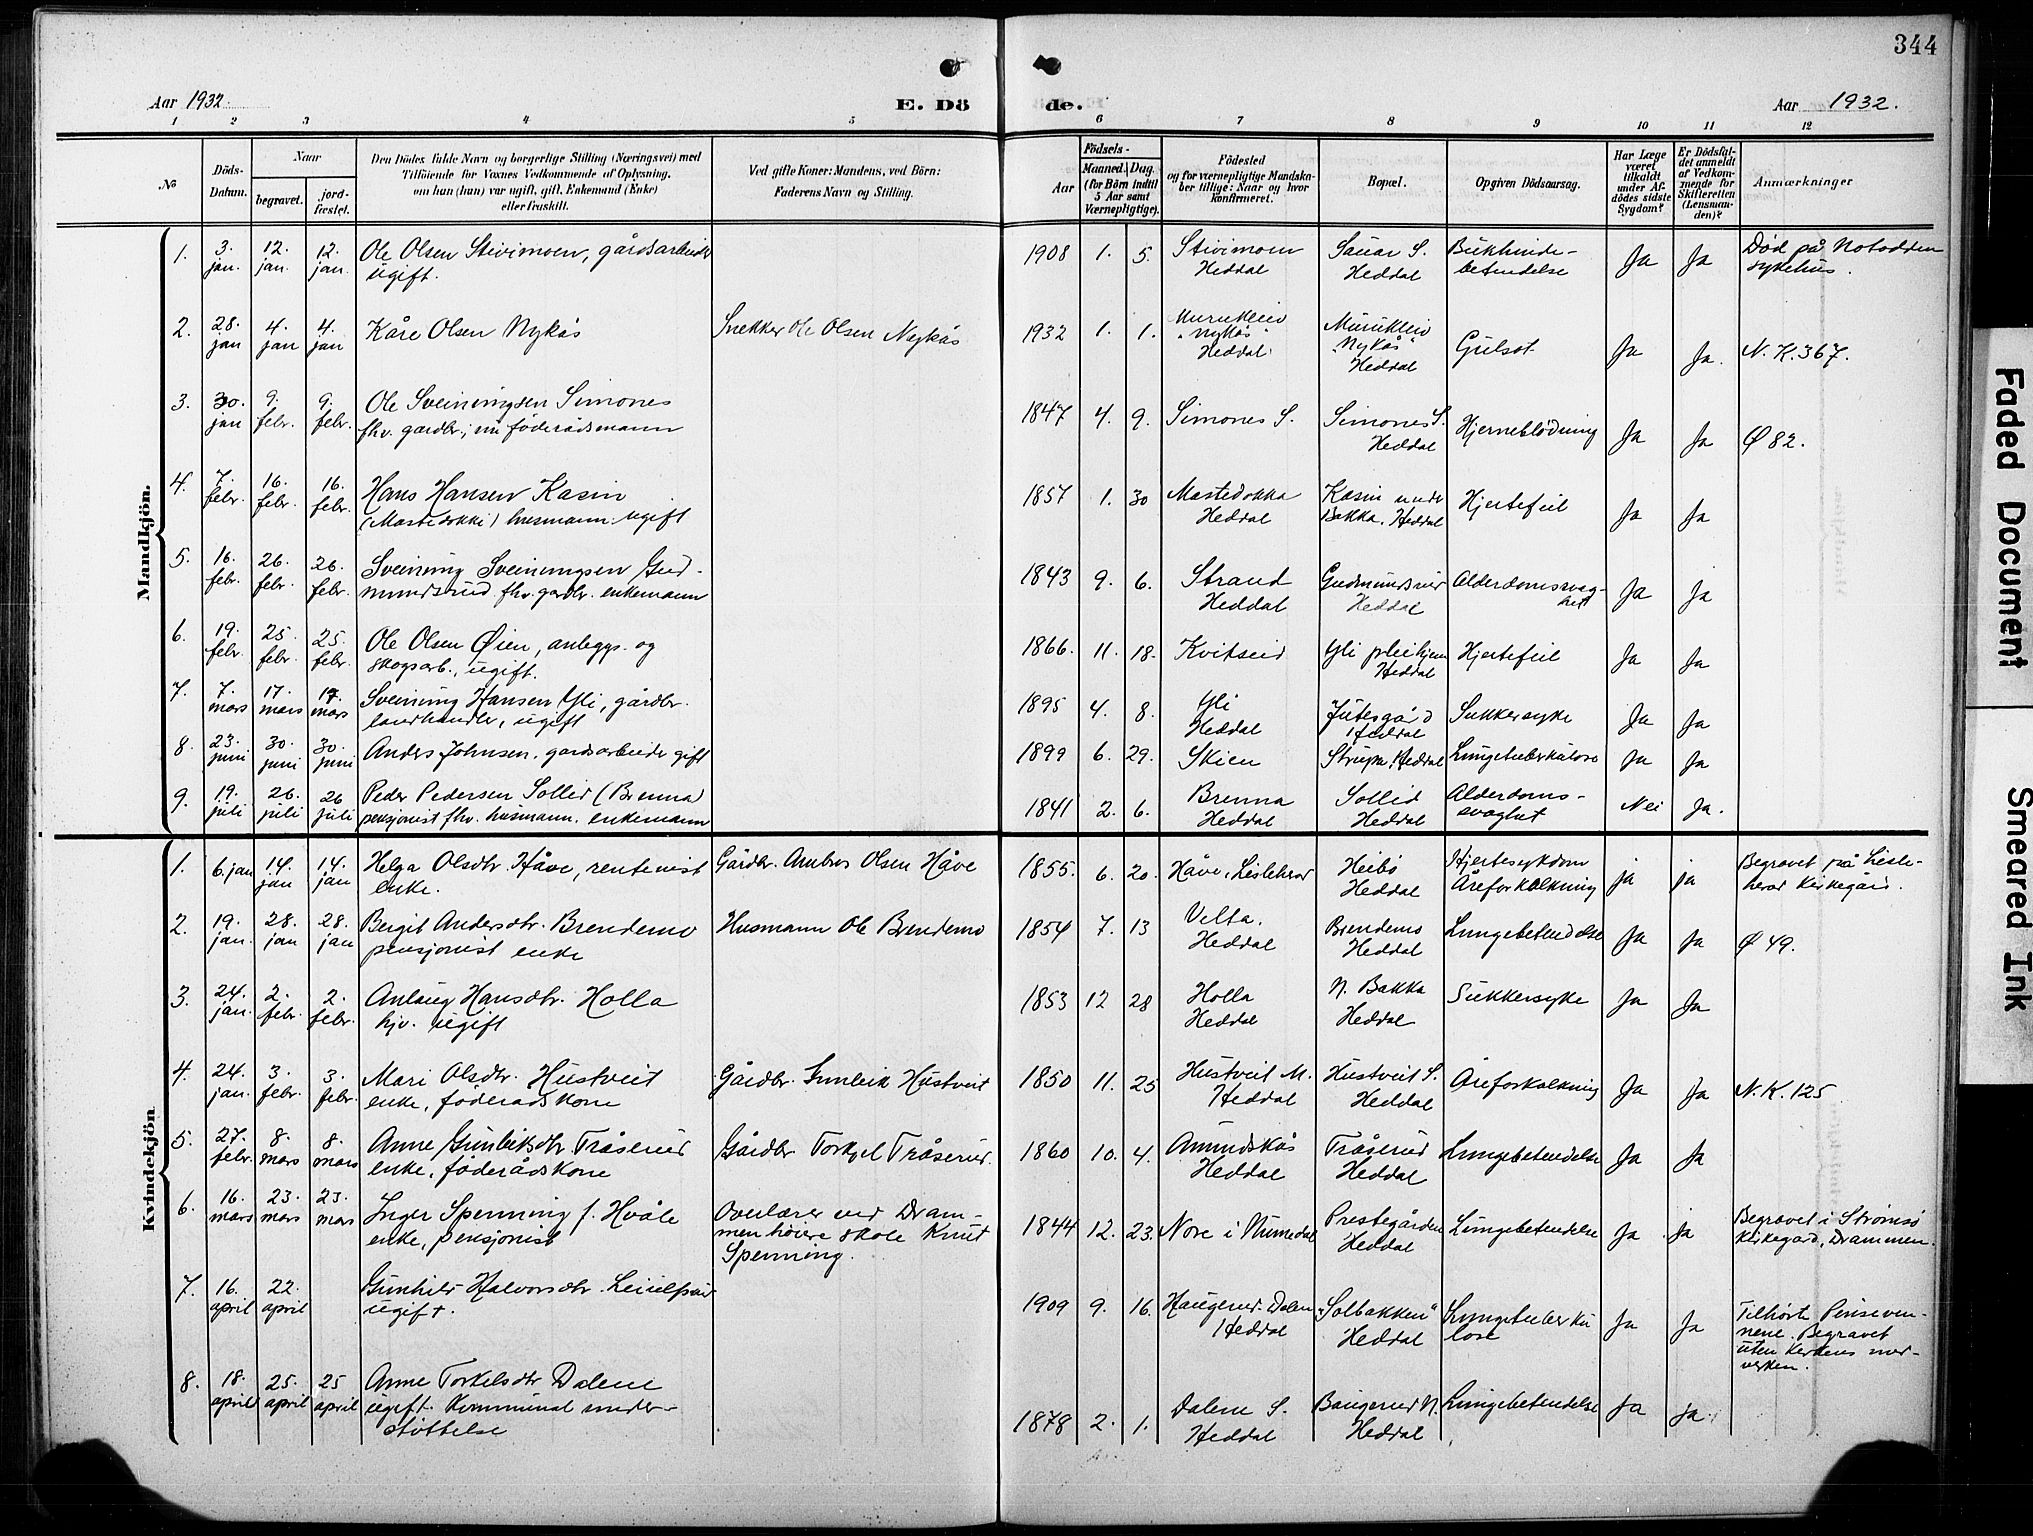 344
Aar 1932.
E. Dö
de.
Aar 1932.
1 2 3 4 5 6 7 8 9 10 11 12
No
Döds-
Datum.
Naar
begravet.
jord-
fæstet.
Den Dödes fulde Navn og borgerlige Stilling (Næringsvei) med
Tilföiende for Voxnes Vedkommende af Oplysning,
om han (hun) var ugift, gift, Enkemand (Enke)
eller fraskilt.
Ved gifte Koner: Mandens, ved Börn:
Faderens Navn og Stilling.
Födsels-
Aar
Maaned. Dag.
(for Börn indtil
5 Aar samt
Værnepligtige).
Födested
og for værnepligtige Mandska-
ber tillige: Naar og hvor
konfirmeret.
Bopæl.
Opgiven Dödsaarsag.
Har Læge
været
tilkaldt
under Af-
dödes sidste
Sygdom?
Er Dödsfal-
det anmeldt
af Vedkom-
mende for
Skifteretten
(Lensman-
den)?
Anmærkninger
Mandkjön.
1. 3. jan. 12. jan. 12. jan. Ole Olsen Stivimoen, gårdsarbeider
ugift.
1908 1. 5. Stivimoen Heddal Sauar S. Heddal Bukhinde-
betendelse Ja Ja Død på Notodden
sykehus.
2. 28. jan 4. jan 4. jan Kåre Olsen Nykås Snekker Ole Olsen Nykås
1932 1. 1. Murukleiv "Nykås" Heddal Murukleiv "Nykås" Heddal Gulsot Ja Ja. N.K. 367.
3. 30. jan 9. febr. 9. febr. Ole Sveiningsen Simones
fhv. gardbr.; nu föderådsmann
1847 4. 9. Simones S. Simones S. Heddal Hjerneblödning Ja Ja Ø 82.
4. 7. febr. 16. febr. 16. febr. Hans Hansen Kasin
(Mastedokki) husmann. ugift
1857 1. 30 Mastedokka Heddal Kasin under Bakka, Heddal Hjertefeil Ja Ja
5. 16. febr. 26. febr. 26. febr. Sveinung Sveinungsen Gud-
mundsrud fhv. gardbr. enkemann
1843 9. 6. Strand Heddal Gudmundsrud Heddal Alderdomssvag-
het Ja Ja
6. 19. febr. 25. febr. 25. febr. Ole Olsen Øien, anleggs. og
skogsarb., ugift.
1866. 11. 18. Kvitseid Yli pleihjem Heddal Hjertefeil Ja Ja
7. 7. mars 17. mars 17. mars Sveinung Hansen Yli, gårdbr.
landhandler, ugift
1895 4. 8. Yli Heddal Jutesgård Heddal Sukkersyke Ja Ja
8. 23. juni 30. juni 30. juni Anders Johnsen, gardsarbeider gift
1899 6. 29. Skien Strupa, Heddal Lungetuberkulose Ja Ja
9. 19. juli 26. juli 26 juli Peder Pedersen Sollid (Brenna)
pensjonist fhv. husmann. enkemann
1841 2. 6. Brenna Heddal Sollid Heddal Alderdoms-
svaghet Nei Ja.
Kvindekjön.
1. 6. jan 14. jan 14. jan Helga Olsdtr. Håve, rentenist
enke. Gårdbr. Ambros Olsen Håve
1855. 6. 20. Håve, Lisleherad Heibö Heddal Hjertesykdom
Åreforkalkning ja ja Begravet på Lisle-
herad kirkegård.
2. 19. jan. 28. jan 28. jan Bergit Andersdtr. Brendemo
pensjonist enke Husmann Ole Brendemo
1854 7. 13 Velta. Heddal Brendemo Heddal Lungebetendelse Ja Ja Ø 49.
3. 24. jan. 2. febr. 2. febr. Anlaug Hansdtr. Holla
hjv. ugift
1853 12 28 Holla Heddal N. Bakka Heddal Sukkersyke Ja Ja
4. 24. jan. 3. febr. 3. febr. Mari Olsdtr. Hustveit
enke, föderådskone Gårdbr. Gunleik Hustveit
1850 11. 25 Hustveit M. Heddal Hustveit S. Heddal Åreforkalkning Ja Ja N.K. 125
5. 27. febr. 8. mars 8. mars Anne Gunleiksdtr. Tråserud
enke, föderådskone Gårdbr Torkjel Tråserud.
1860 10. 4. Amundskås Heddal Tråserud Heddal Lungebetendelse Ja Ja
6. 16. mars 23. mars 23. mars Inger Spenning f. Hvåle
enke, pensjonist Overlærer ved Dram-
men höiere skole Knut
Spenning.
1844 12. 23. Nore i Numedal Prestegården Heddal Lungebetendelse Ja Ja Begravet i Strömsö
kirkegård, Drammen.
7. 16. april 22. april Gunhild Halvorsdtr.
ugift.
1909 9. 16. Haugerud Dalen Heddal "Solbakken" Heddal Lungetuberku
lose Ja Ja Tilhörte Pinseven-
nene. Begravet
uten kirkens med-
virken.
8. 18. april 25. april 25 april Anne Torkelsdtr Dalene
ugift. Kommunal under-
stöttelse
1878 2. 1. Dalene S. Heddal Baugerud N. Heddal Lungebetendelse Ja ja.
Faded Document
Smeared Ink